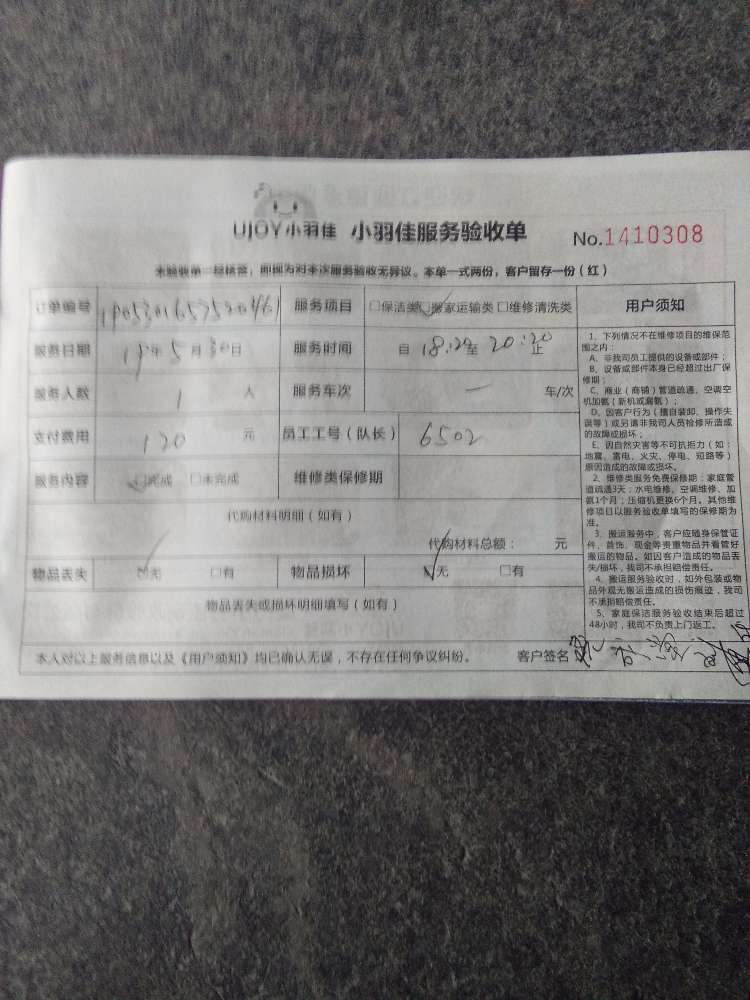 UJOY小羽佳 小羽佳服务验收单 No.1410308
本验收单一经核签，即视为对本次服务验收无异议。本单一式两份，客户留存一份（红）
订单编号 服务项目 □保洁类□搬家运输类□维修清洗类 用户须知
服务日期 19年5月30日 服务时间 自18:20至20:20止
服务人数 1人 服务车次 一 车/次
支付费用 120元 员工工号（队长） 6502
服务内容 □完成 □未完成 维修类保修期
代购材料明细（如有）
代购材料总额： 元
物品丢失 ☑无 □有 物品损坏 ☑无 □有
物品丢失或损坏明细填写（如有）
本人对以上服务信息以及《用户须知》均已确认无误，不存在任何争议纠纷。 客户签名
1、下列情况不在维修项目的维保范
围之内：
A、非我司员工提供的设备或部件；
B、设备或部件本身已经超过出厂保
修期；
C、商业（商铺）管道疏通、空调空
机加氨（新机或漏氨）；
D、因客户行为（擅自装卸、操作失
误等）或另请非我司人员检修所造成
的故障或损坏；
E、因自然灾害等不可抗拒力（如：
地震、雷电、火灾、停电、短路等）
原因造成的故障或损坏。
2、维修类服务免费保修期：家庭管
道疏通3天；水电维修、空调维修、加
氨1个月；压缩机更换6个月。其他维
修项目以服务验收单填写的保修期为
准。
3、搬运服务中，客户应随身保管证
件、首饰、现金等贵重物品并看管好
搬运的物品。如因客户造成的物品丢
失/损坏，我司不承担赔偿责任。
4、搬运服务验收时，如外包装或物
品外观无搬运造成的损伤痕迹，我司
不承担赔偿责任。
5、家庭保洁服务验收结束后超过
48小时，我司不负责上门返工。